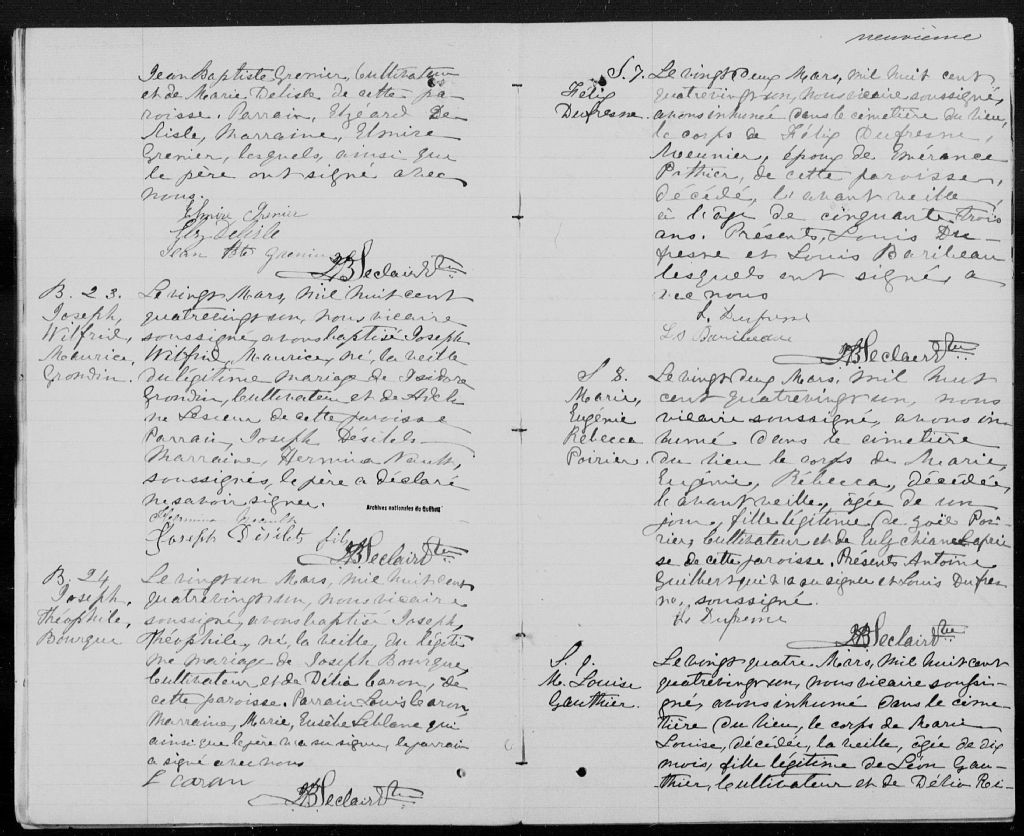 Jean Baptiste Grenier, Cultivateur
et de Marie Delisle de cette pa-
roisse. Parrain, Elzéard De
lisle, Marraine, Elmire
Grenier, lesquels, ainsi que
le père ont signé avec
nous.
Elmire Grenier
Elz Delisle
Jean Bte Grenier
JB Leclair Ptre
B. 23.
Joseph,
Wilfrid,
Maurice,
Grondin.
Le vingt Mars, mil huit cent
quatrevingt un, nous vicaire
soussigné, avons baptisé Joseph
Wilfrid, Maurice, né, la veille
du légitime mariage de Isidore
Grondin, Cultivateur et de Adeli
ne Lesieur de cette paroisse
Parrain, Joseph Désilets
Marraine, Hermina Nault,
soussignés, le père a déclaré
ne savoir signer.
Hermina Nault
Joseph Désilets fils
JB Leclair Ptre
Archives nationales du Québec
B. 24
Joseph,
Théophile,
Bourque
Le vingt un Mars, mil huit cent
quatrevingt un, nous vicaire
soussigné, avons baptisé Joseph,
Théophile, né, la veille, du légiti
me mariage de Joseph Bourque,
Cultivateur et de Délia Caron, de
cette paroisse. Parrain Louis Caron
Marraine, Marie, Eusèbe Leblanc qui
ainsi que le père n'a su signer, le parrain
a signé avec nous
L Caron
JB Leclair Ptre
neuvième
S. 7.
Félix
Dufresne.
Le vingt deux Mars, mil huit cent
quatrevingt un, nous vicaire soussigné,
avons inhumé dans le cimetière du lieu,
le corps de Félix Dufresne,
Meunier, époux de Emérance
Pothier, de cette paroisse,
décédé, l'avant veille
à l'âge de cinquante trois
ans. Présents, Louis Du-
fresne et Louis Baribeau
lesquels ont signé a
vec nous
L. Dufresne
Ls Baribeau
JB Leclair Ptre
S 8.
Marie,
Eugénie
Rébecca
Poirier.
Le vingt deux Mars, mil huit
cent quatrevingt un, nous
vicaire soussigné, avons in
humé dans le cimetière
du lieu le corps de Marie,
Eugénie, Rébecca, décédée,
l'avant veille, âgée de un
jour, fille légitime de Joël Poi-
rier, Cultivateur et de Eulychiane
se de cette paroisse. Présents Antoine
Guilbert qui n'a su signer et Louis Dufres
ne, soussigné.
Ls Dufresne
JB Leclair Ptre
S. 9.
M. Louise
Gauthier.
Le vingt quatre Mars, mil huit cent
quatrevingt un, nous vicaire soussi-
gné, avons inhumé dans le cime-
tière du lieu, le corps de Marie
Louise, décédée, la veille, âgée de dix
mois, fille légitime de Léon Gau-
thier, Cultivateur et de Délia Ri-